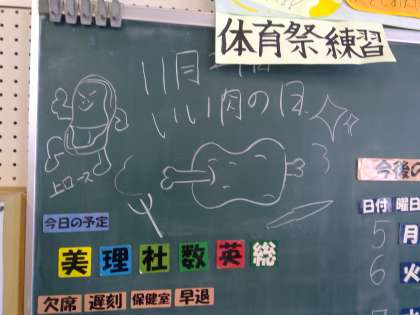 体育祭練習
11月
いい肉の日
上ロース
今日の予定
美 理 社 数 英 総
欠席 遅刻 保健室 早退
今後の
日付 曜日
5 月
6 火